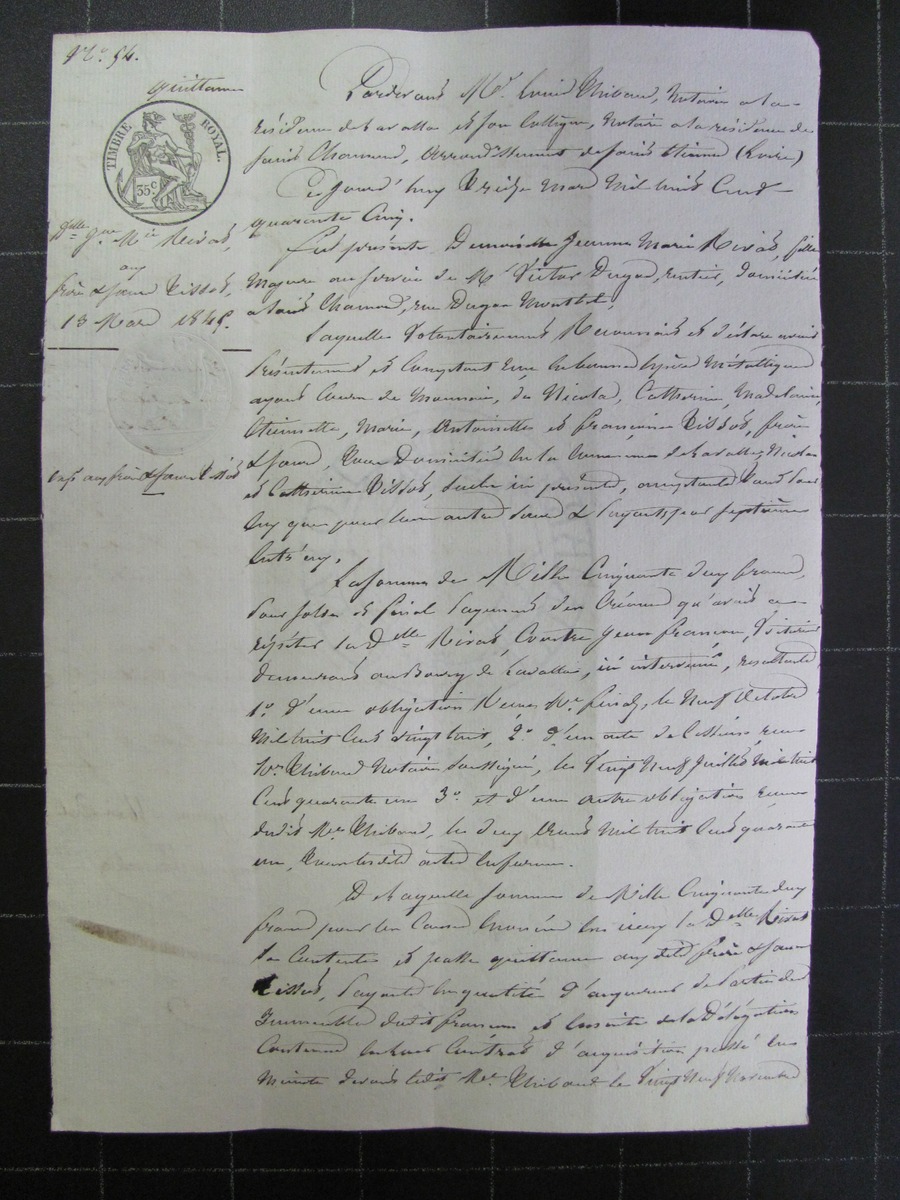 N.° 54.
quittance
TIMBRE ROYAL.
35 c
Delle Jne Mie Rivat,
aux
frère & sœurs Tissot,
13 Mars 1845.
Pardevant Me Louis Thibaud, Notaire à la
résidence de Lavalla et son collègue, Notaire à la résidence de
Saint Chamond, arrondissement de Saint Etienne (Loire)
Ce jourd'huy treize Mars Mil huit Cent
quarante Cinq.
fut présente Demoiselle Jeanne Marie Rivat, fille
Majeure au service de Mr Victor Dugas, rentier, domiciliée
à Saint Chamond, rue Dugas Montbel.
Laquelle Volontairement Reconnait et déclare avoir
présentement et Comptant en espèces Métalliques
ayant Cours de Monnaie, de Nicolas, Catherine, Madelaine,
Etiennette, Marie, Antoinette et françoise Tissot, frère
& sœurs, tous Domiciliés en la Commune de Lavalla, Nicolas
et Catherine Tissot, seuls ici présents, acceptants tant pour
eux que pour leurs autres sœurs & payants par septième
entr'eux.
exp aux frère & sœurs Tissot
La somme de Mille Cinquante deux francs,
pour solde et final payement d'une Créance qu'avait à
répéter la Delle Rivat, Contre Jean françois,
demeurant au Bourg de Lavalla, ici intervenu, resultante
1.° d'une obligation Reçue Me finaz, le Neuf Octobre
Mil huit Cent vingt sept, 2.° d'un acte de Cession reçu
Me Thibaud Notaire soussigné, le vingt Neuf Juillet Mil huit
Cent quarante un 3.° et d'une autre obligation reçue
dudit Me Thibaud, le deux Mil huit Cent quarante
un, tous lesdits actes en forme.
De laquelle somme de Mille Cinquante deux
francs pour les Causes énoncées la Delle Rivat
se Contente et passe quittance auxdits frère & sœurs
Tissot, payants en qualité d'acquéreurs de partie des
Immeubles dudit françois et ensuite de la Délégation
Contenue en leur Contrat d'acquisition passé en
Minute devant ledit Me Thibaud le vingt Neuf Novembre